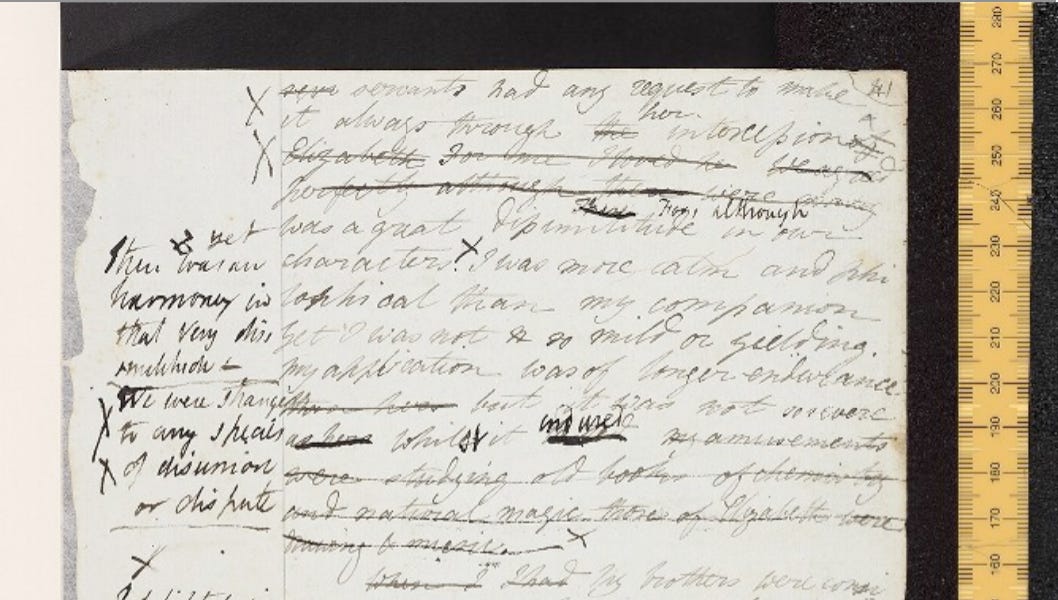 servants had any request to make 41
it always through the her intercession
Elizabeth For me I loved
perfectly although there were
was a great dissimilitude in our
There For, although
characters. I was more calm and phi
losophical than my companion
yet I was not so mild or yielding.
my application was of longer endurance
than hers but it was not so severe
as hers whilst it endured my amusements
were studying old books of chemistry
and natural magic those of Elizabeth were
drawing & music.
When I I had My brothers were
yet
there was an
harmoney in
that very dis
similitude
We were strangers
to any species
of disunion
or dispute